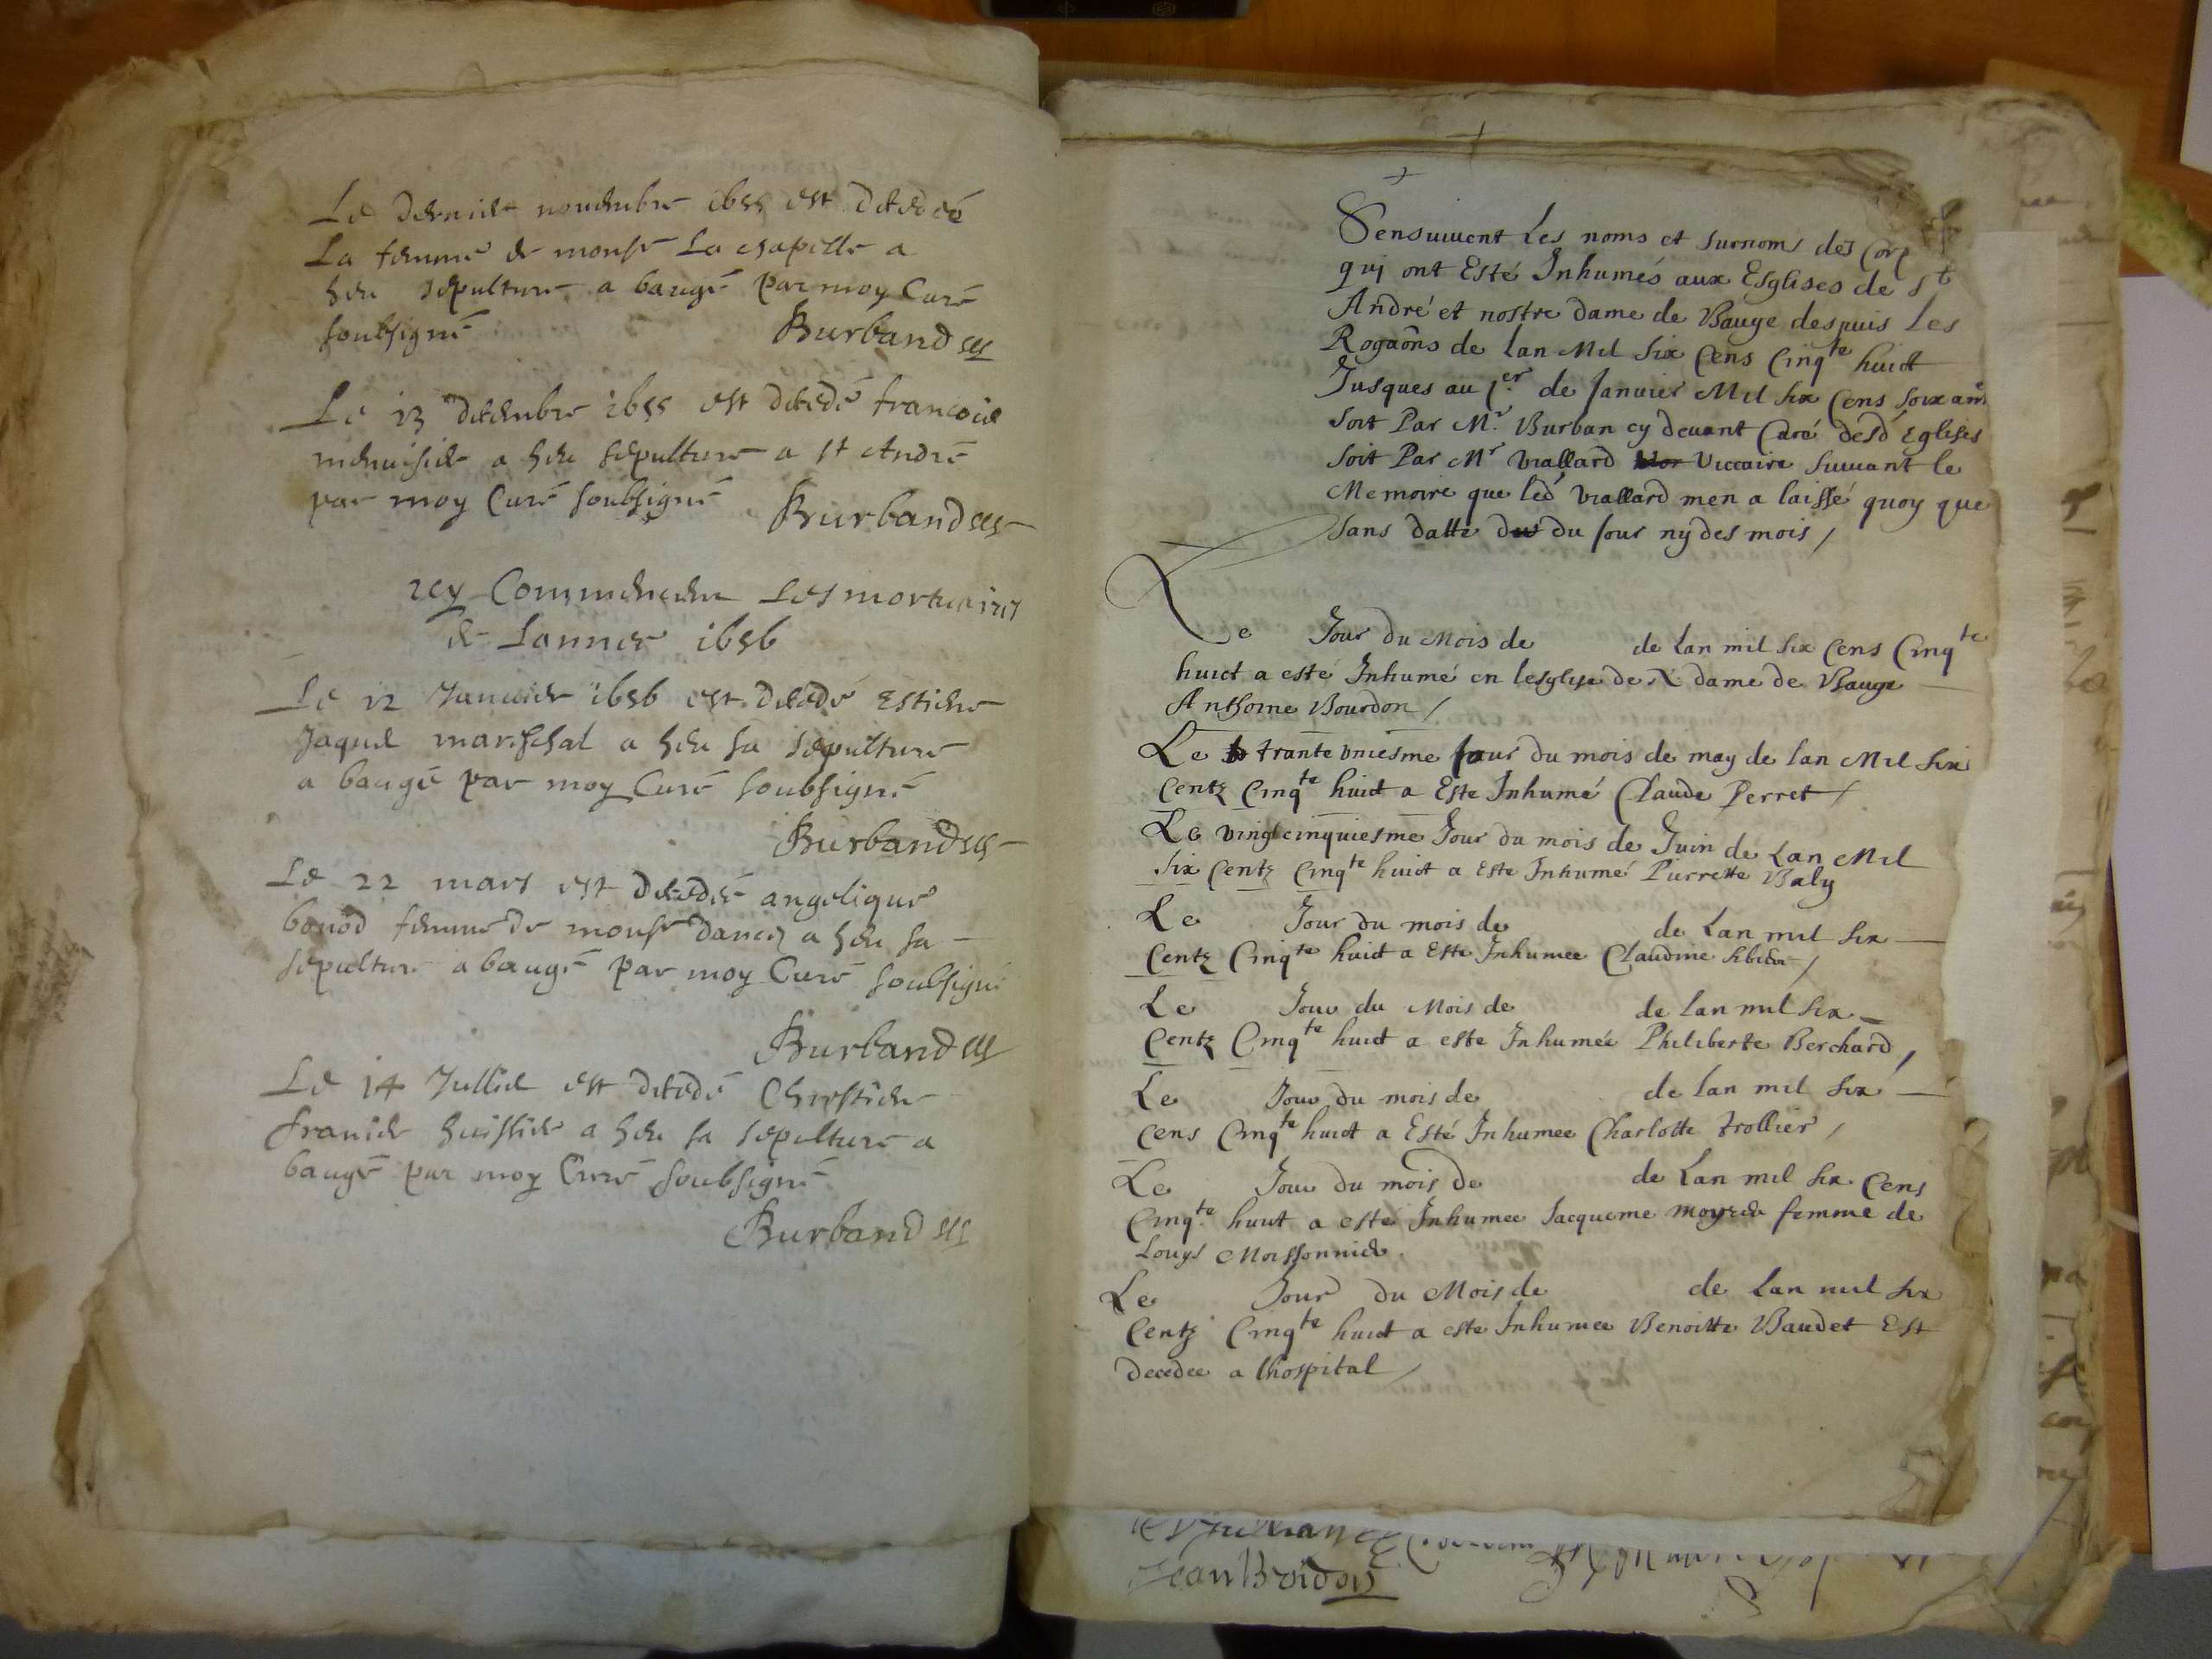 Le dernier nouembre 1655 est decedeé
La femme de monsr La chapelle a
heu sepulture a baugé par moy Curé
soubsigné Burband
Le 13 decembre 1655 est decedé francois
menuisier a heu sepulture a st Andre
par moy Curé soubsigné Burband
icy Commencent Les mortuaires
de Lannee 1656
Le 12 Januier 1656 est decedé Estiene
Jaquel mareschal a heu sa sepulture
a baugé par moy Curé soubsigné
Burband
Le 22 mars est decedée angelique
bouod femme de monsr a heu sa
sepulture a baugé par moy Curé soubsigné
Burband
Le 14 Jullie est decedé
franier huissier a heu sa sepulture a
baugé par moy Curé soubsigné
Burband
Sensuiuent Les noms et surnoms des Corp
qui ont Esté Inhumés aux Esglises de St
André et nostre dame de Bauge despuis Les
Rogaôns de lan Mil Six Cens Cinqte huict
Jusques au 1er de Januier Mil six Cens soixan
Soit Par Mr Burban cy deuant Curé desd Eglises
Soit Par Mr Viallard Viccaire suiuant le
Memoire que led Viallard men a laissé quoy que
sans datte du Jour ny des mois /
Le Jour du Mois de de Lan mil six Cens Cinqte
huict a esté Inhumé en lesglise de N dame de Bauge
Anthoine Bourdon /
Le trante vniesme Jour du mois de may de lan Mil six
Centz Cinqte huict a Este Inhumé Claude Perret /
Le vingtcinquiesme Jour du mois de Juin de Lan Mil
Six Centz Cinqte huict a Este Inhumé Pierrette Baly
Le Jour du mois de de Lan mil six
Centz Cinqte huict a Este Inhumee Claudine
Le Jour du Mois de de lan mil six
Centz Cinqte huict a este Inhumée Philiberte Berchard /
Le Jour du mois de de lan mil six
Cens Cinqte huict a Esté Inhumee Charlotte trollier /
Le Jour du mois de de Lan mil six Cens
Cinqte huict a esté Inhumee Jacqueme femme de
Louys Moissonnier
Le Jour du Mois de de Lan mil six
Centz Cinqte huict a este Inhumee Benoitte Baudet Est
decedee a lhospital /
Jean